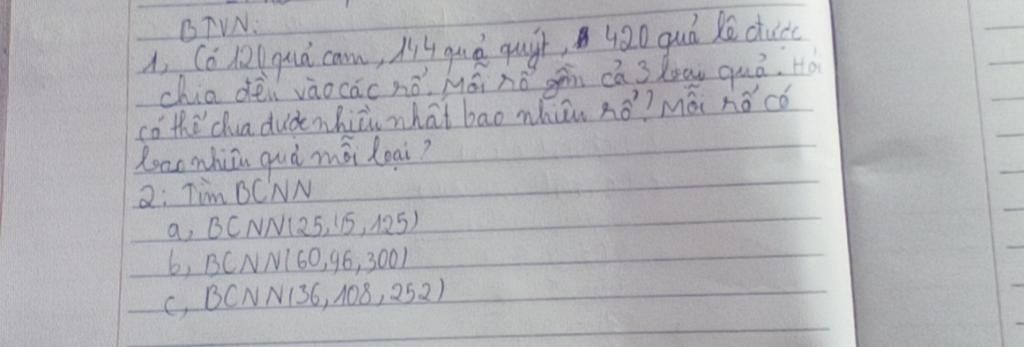 BTVN:
1, Có 120 quả cam, 144 quả quýt, 420 quả lê được
chia đều vào các rổ. Mỗi rổ gồm cả 3 loại quả. Hỏi
có thể chia được nhiều nhất bao nhiêu rổ? Mỗi rổ có
bao nhiêu quả mỗi loại?
2: Tìm BCNN
a, BCNN(25,15,125)
b, BCNN(60,96,300)
c, BCNN(36,108,252)